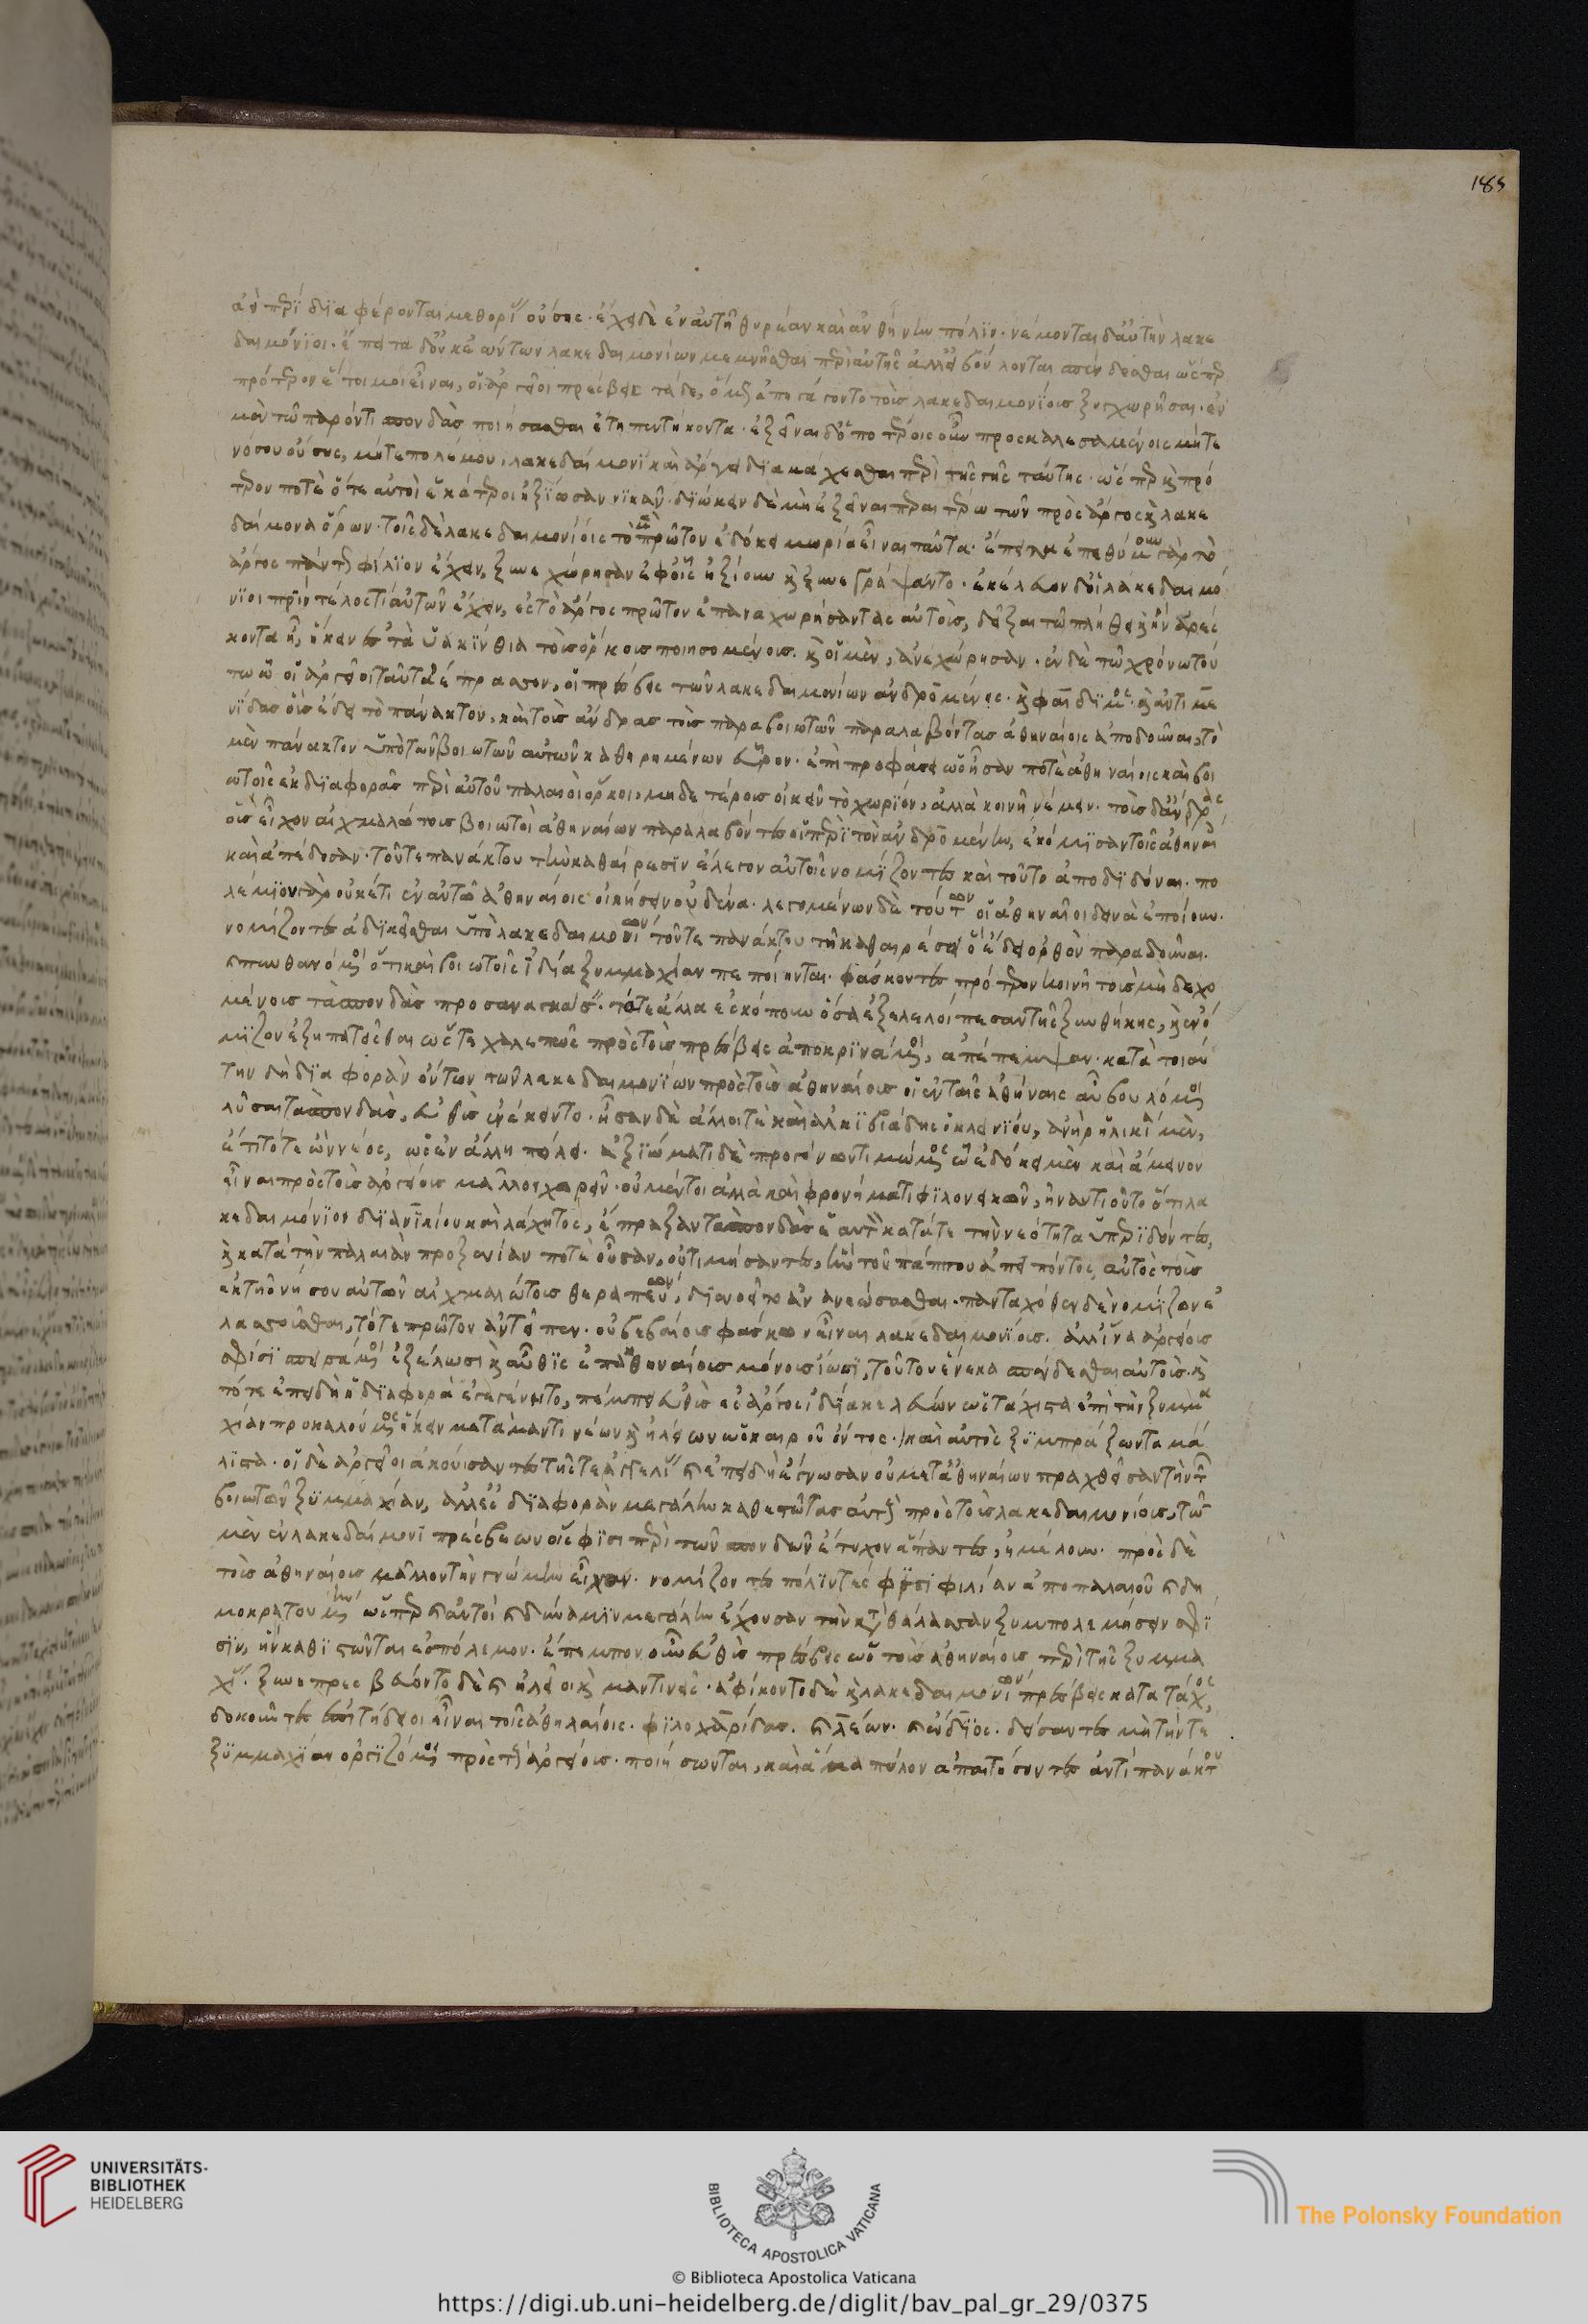 ἀεὶ περὶ διαφέρονται μεθορίας οὔσης· ἔχει δὲ ἐν αὐτῇ θυρέαν καὶ ἀνθήνην πόλιν· νέμονται δ' αὐτὴν λακε
δαιμόνιοι· ἔπειτα δ' οὐκ ἐώντων λακεδαιμονίων μεμνῆσθαι περὶ αὐτῆς ἀλλ' εἰ βούλονται σπένδεσθαι ὥσπερ
πρότερον ἕτοιμοι εἶναι, οἱ ἀργεῖοι πρέσβεις τάδε, ὅμως ἐπηγάγοντο τοὺς λακεδαιμονίους ξυγχωρῆσαι· ἐν
μὲν τῷ παρόντι σπονδὰς ποιήσασθαι ἔτη πεντήκοντα· ἐξεῖναι δ' ὁποτέροις οὖν προσκαλεσαμένοις μήτε
νόσου οὔσης, μήτε πολέμου, λακεδαίμονι καὶ ἄργει διαμάχεσθαι περὶ τῆς γῆς ταύτης· ὥσπερ καὶ πρό
τερον ποτὲ ὅτε αὐτοὶ ἑκάτεροι ἠξίωσαν νικᾶν· διώκειν δὲ μὴ ἐξεῖναι περαιτέρω τῶν πρὸς ἄργος καὶ λακε
δαίμονα ὅρων· τοῖς δὲ λακεδαιμονίοις τὸ μὲν πρῶτον ἐδόκει μωρία εἶναι ταῦτα· ἔπειτα ἐπεθύμουν γὰρ τὸ
ἄργος πάντως φίλιον ἔχειν, ξυνεχώρησαν ἐφ' οἷς ἠξίουν καὶ ξυνεγράψαντο· ἐκέλευον δ' οἱ λακεδαιμό
νιοι πρὶν τέλος τι αὐτῶν ἔχειν, ἐς τὸ ἄργος πρῶτον ἐπαναχωρήσαντας αὐτοὺς, δεῖξαι τῷ πλήθει καὶ ἢν ἀρέσ
κοντα ᾖ, ἥκειν ἐς τὰ ὑακίνθια τοὺς ὅρκους ποιησομένους. καὶ οἱ μὲν, ἀνεχώρησαν· ἐν δὲ τῷ χρόνῳ τού
τῳ ᾧ οἱ ἀργεῖοι ταῦτα ἔπρασσον, οἱ πρέσβεις τῶν λακεδαιμονίων ἀνδρομένης· καὶ φαίδιμος· καὶ ἀντιμε
νίδας οὓς ἔδει τὸ πάνακτον, καὶ τοὺς ἄνδρας τοὺς παρὰ βοιωτῶν παραλαβόντας ἀθηναίοις ἀποδοῦναι, τὸ
μὲν πάνακτον ὑπὸ τῶν βοιωτῶν αὐτῶν καθῃρημένον εὗρον· ἐπὶ προφάσει ὡς ἦσαν ποτὲ ἀθηναίοις καὶ βοι
ωτοῖς ἐκ διαφορᾶς περὶ αὐτοῦ παλαιοὶ ὅρκοι, μηδετέρους οἰκεῖν τὸ χωρίον, ἀλλὰ κοινῇ νέμειν· τοὺς δ' ἄνδρας
οὓς εἶχον αἰχμαλώτους βοιωτοὶ ἀθηναίων παραλαβόντες οἱ περὶ τὸν ἀνδρομένην, ἐκόμισαν τοῖς ἀθηναίοις
καὶ ἀπέδοσαν· τοῦ τε πανάκτου τὴν καθαίρεσιν ἔλεγον αὐτοῖς νομίζοντες καὶ τοῦτο ἀποδιδόναι· πο
λέμιον γὰρ οὐκέτι ἐν αὐτῷ ἀθηναίοις οἰκήσειν οὐδένα. λεγομένων δὲ τούτων οἱ ἀθηναῖοι δεινὰ ἐποίουν.
νομίζοντες ἀδικεῖσθαι ὑπὸ λακεδαιμονίων τοῦ τε πανάκτου τῇ καθαιρέσει ὃ ἔδει ὀρθὸν παραδοῦναι.
καὶ πυνθανόμενοι ὅτι καὶ βοιωτοῖς ἰδίᾳ ξυμμαχίαν πεποίηνται. φάσκοντες πρότερον κοινῇ τοὺς μὴ δεχο
μένους τὰς σπονδὰς προσαναγκάσειν· τά τε ἄλλα ἐσκόπουν ὅσα ἐξελελοίπεσαν τῆς ξυνθήκης, καὶ ἐνό
μιζον ἐξηπατῆσθαι ὥστε χαλεπῶς πρὸς τοὺς πρέσβεις ἀποκρινάμενοι, ἀπέπεμψαν· κατὰ τοιαύ
την δὴ διαφορὰν ὄντων τῶν λακεδαιμονίων πρὸς τοὺς ἀθηναίους οἱ ἐν ταῖς ἀθήναις αὖ βουλόμενοι
λῦσαι τὰς σπονδὰς, εὐθὺς ἐνέκειντο· ἦσαν δὲ ἄλλοι τε καὶ ἀλκιβιάδης ὁ κλεινίου, ἀνὴρ ἡλικίᾳ μὲν,
ἔτι τότε ὢν νέος, ὡς ἐν ἄλλῃ πόλει· ἀξιώματι δὲ προγόνων τιμώμενος ᾧ ἐδόκει μὲν καὶ ἄμεινον
εἶναι πρὸς τοὺς ἀργείους μᾶλλον χωρεῖν· οὐ μέντοι ἀλλὰ καὶ φρονήματι φιλονεικῶν, ἠναντιοῦτο ὅτι λα
κεδαιμόνιοι διὰ νικίου καὶ λάχητος, ἔπραξαν τὰς σπονδὰς ἑαυτὸν κατά τε τὴν νεότητα ὑπεριδόντες,
καὶ κατὰ τὴν παλαιὰν προξενίαν ποτὲ οὖσαν, οὐ τιμήσαντες, ἣν τοῦ πάππου ἀπειπόντος, αὐτὸς τοὺς
ἐκ τῆς νήσου αὐτῶν αἰχμαλώτους θεραπεύων, διενοεῖτο ἀνανεώσασθαι. πανταχόθεν δὲ νομίζων ἐ
λασσοῦσθαι, τό τε πρῶτον ἀντεῖπεν· οὐ βεβαίους φάσκων εἶναι λακεδαιμονίους. ἀλλ' ἵνα ἀργείους
σφίσι σπεισάμενοι ἐξέλωσι καὶ αὖθις ἐπ' ἀθηναίους μόνους ἴωσι, τούτου ἕνεκα σπένδεσθαι αὐτούς· καὶ
τότε ἐπειδὴ ἡ διαφορὰ ἐγεγένητο, πέμπει εὐθὺς ἐς ἄργος ἰδίᾳ κελεύων ὡς τάχιστα ἐπὶ τὴν ξυμμα
χίαν προκαλουμένους ἥκειν μετὰ μαντινέων καὶ ἠλείων ὡς καιροῦ ὄντος· καὶ αὐτὸς ξυμπράξων τὰ μά
λιστα· οἱ δὲ ἀργεῖοι ἀκούσαντες τῆς τε ἀγγελίας καὶ ἐπειδὴ ἔγνωσαν οὐ μετ' ἀθηναίων πραχθεῖσαν τὴν τῶν
βοιωτῶν ξυμμαχίαν, ἀλλ' ἐς διαφορὰν μεγάλην καθεστῶτας αὐτοὺς πρὸς τοὺς λακεδαιμονίους, τῶν
μὲν ἐν λακεδαίμονι πρέσβεων οἵ σφισι περὶ τῶν σπονδῶν ἔτυχον ἀπόντες, ἠμέλουν· πρὸς δὲ
τοὺς ἀθηναίους μᾶλλον τὴν γνώμην εἶχον· νομίζοντες πόλιν τε σφίσι φιλίαν ἀπὸ παλαιοῦ καὶ δη
μοκρατουμένην ὥσπερ καὶ αὐτοὶ καὶ δύναμιν μεγάλην ἔχουσαν τὴν κατὰ θάλασσαν ξυμπολεμήσειν σφί
σιν, ἢν καθιστῶνται ἐς πόλεμον· ἔπεμπον οὖν εὐθὺς πρέσβεις ὡς τοὺς ἀθηναίους περὶ τῆς ξυμμα
χίας· ξυνεπρεσβεύοντο δὲ καὶ ἠλεῖοι καὶ μαντινῆς· ἀφίκοντο δὲ καὶ λακεδαιμονίων πρέσβεις κατὰ τάχος,
δοκοῦντες ἐπιτήδειοι εἶναι τοῖς ἀθηναίοις· φιλοχαρίδας. καὶ λέων. καὶ ἔνδιος· δείσαντες μὴ τήν τε
ξυμμαχίαν ὀργιζόμενοι πρὸς τοὺς ἀργείους· ποιήσωνται, καὶ ἅμα πύλον ἀπαιτήσοντες ἀντὶ πανάκτου
185
UNIVERSITÄTS-
BIBLIOTHEK
HEIDELBERG
BIBLIOTECA APOSTOLICA VATICANA
The Polonsky Foundation
© Biblioteca Apostolica Vaticana
https://digi.ub.uni-heidelberg.de/diglit/bav_pal_gr_29/0375